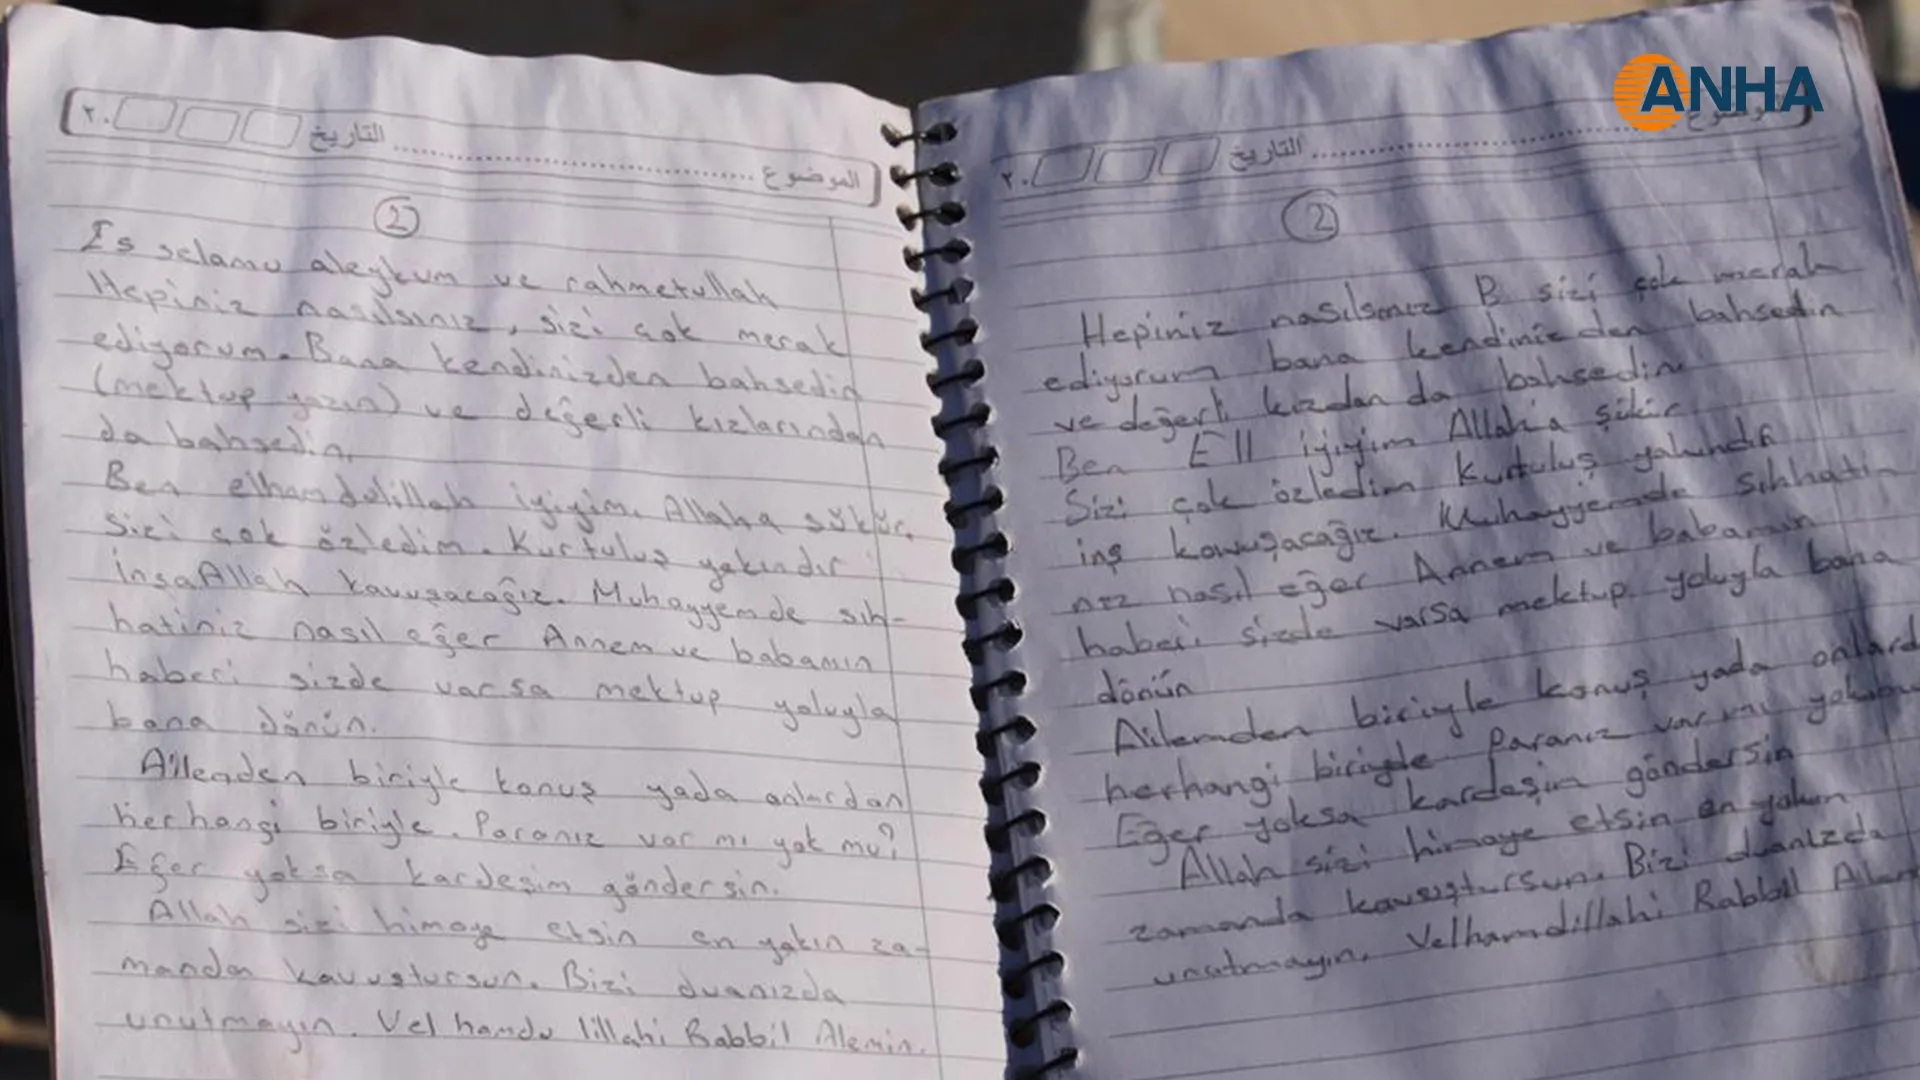 ANHA
الموضوع ........................ التاريخ ٢٠
2
Es selamu aleykum ve rahmetullah
Hepiniz nasılsınız, sizi çok merak
ediyorum. Bana kendinizden bahsedin
(mektup yazın) ve değerli kızlarından
da bahsedin.
Ben elhamdulillah iyiyim. Allaha şükür.
Sizi çok özledim. Kurtuluş yakındır
inşaAllah kavuşacağız. Muhayyemde sıh-
hatiniz nasıl eğer Annem ve babamın
haberi sizde varsa mektup yoluyla
bana dönün.
Ailemden biriyle konuş yada onlardan
herhangi biriyle. Paranız var mı yok mu?
Eğer yoksa kardeşim göndersin.
Allah sizi himaye etsin en yakın za-
manda kavuştursun. Bizi duanızda
unutmayın. Vel hamdu lillahi Rabbil Alemin.
الموضوع ........................ التاريخ ٢٠
2
Hepiniz nasılsınız B sizi çok merak
ediyorum bana kendinizden bahsedin
ve değerli kızdan da bahsedin
Ben Ell iyiyim Allah'a şükür
Sizi çok özledim Kurtuluş yakındır
inş kavuşacağız. Muhayyemde sıhhatin
nız nasıl eğer Annem ve babamın
haberi sizde varsa mektup yoluyla bana
dönün
Ailemden biriyle konuş yada onlard
herhangi biriyle Paranız var mı yokmu
Eğer yoksa kardeşim göndersin
Allah sizi himaye etsin en yakın
zamanda kavuştursun. Bizi duanızda
unutmayın. Velhamdillahi Rabbil Alem